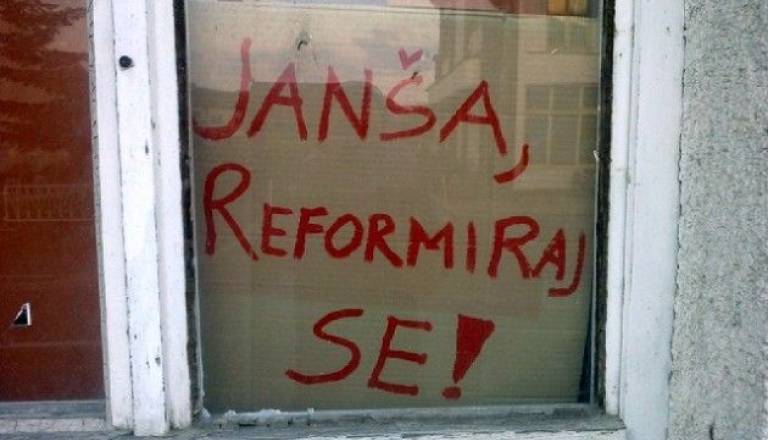 JANŠA,
REFORMIRAJ
SE!